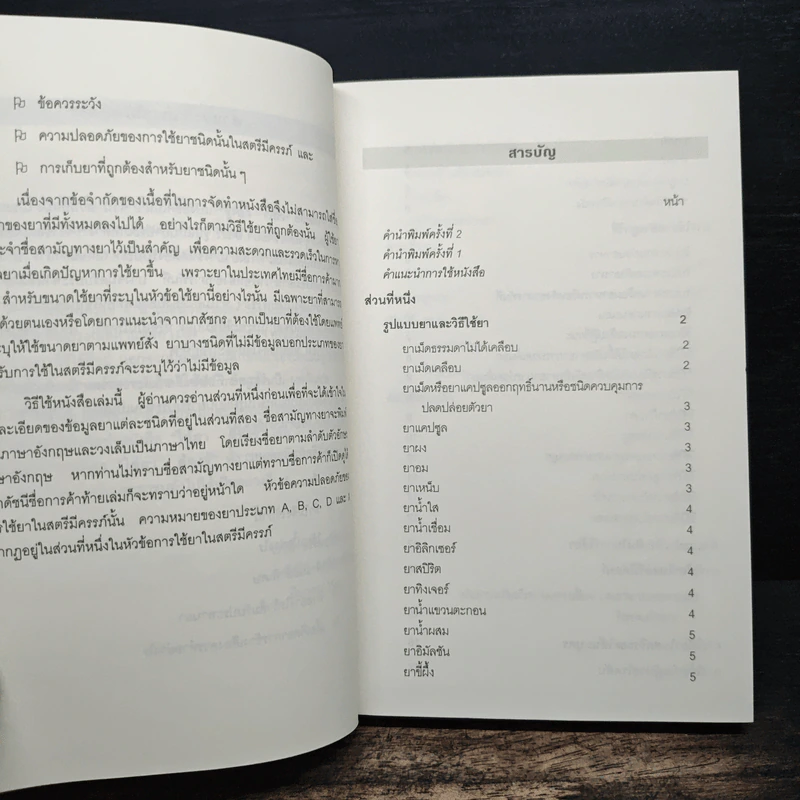 ข้อควรระวัง
ความปลอดภัยของการใช้ยาชนิดนั้นในสตรีมีครรภ์ และ
การเก็บยาที่ถูกต้องสำหรับยาชนิดนั้น ๆ
เนื่องจากข้อจำกัดของเนื้อที่ในการจัดทำหนังสือจึงไม่สามารถใส่ชื่อ
ของยาที่มีทั้งหมดลงไปได้ อย่างไรก็ตามวิธีใช้ยาที่ถูกต้องนั้น ผู้ใช้ยา
จำชื่อสามัญทางยาไว้เป็นสำคัญ เพื่อความสะดวกและรวดเร็วในการ
เมื่อเกิดปัญหาการใช้ยาขึ้น เพราะยาในประเทศไทยมีชื่อการค้า
สำหรับขนาดใช้ยาที่ระบุในหัวข้อใช้ยานี้อย่างไรนั้น มีเฉพาะยาที่สามารถ
ด้วยตนเองหรือโดยการแนะนำจากเภสัชกร หากเป็นยาที่ต้องใช้โดยแพทย์
ระบุให้ใช้ขนาดยาตามแพทย์สั่ง ยาบางชนิดที่ไม่มีข้อมูลบอกประเภทของยา
การใช้ในสตรีมีครรภ์จะระบุไว้ว่าไม่มีข้อมูล
วิธีใช้หนังสือเล่มนี้ ผู้อ่านควรอ่านส่วนที่หนึ่งก่อนเพื่อที่จะได้เข้าใจใน
ละเอียดของข้อมูลยาแต่ละชนิดที่อยู่ในส่วนที่สอง ชื่อสามัญทางยาจะพิมพ์
ภาษาอังกฤษและวงเล็บเป็นภาษาไทย โดยเรียงชื่อยาตามลำดับตัวอักษร
ภาษาอังกฤษ หากท่านไม่ทราบชื่อสามัญทางยาแต่ทราบชื่อการค้าก็เปิดดูได้
ดัชนีชื่อการค้าท้ายเล่มก็จะทราบว่าอยู่หน้าใด หัวข้อความปลอดภัยของ
การใช้ยาในสตรีมีครรภ์นั้น ความหมายของยาประเภท A, B, C, D และ
อยู่ในส่วนที่หนึ่งในหัวข้อการใช้ยาในสตรีมีครรภ์
สารบัญ
หน้า
คำนำพิมพ์ครั้งที่ 2
คำนำพิมพ์ครั้งที่ 1
คำแนะนำการใช้หนังสือ
ส่วนที่หนึ่ง
รูปแบบยาและวิธีใช้ยา 2
ยาเม็ดธรรมดาไม่ได้เคลือบ 2
ยาเม็ดเคลือบ 2
ยาเม็ดหรือยาแคปซูลออกฤทธิ์นานหรือชนิดควบคุมการ
ปลดปล่อยตัวยา 3
ยาแคปซูล 3
ยาผง 3
ยาอม 3
ยาเหน็บ 3
ยาน้ำใส 4
ยาน้ำเชื่อม 4
ยาอิลิกเซอร์ 4
ยาสปิริต 4
ยาทิงเจอร์ 4
ยาน้ำแขวนตะกอน 4
ยาน้ำผสม 5
ยาอิมัลชัน 5
ยาขี้ผึ้ง 5